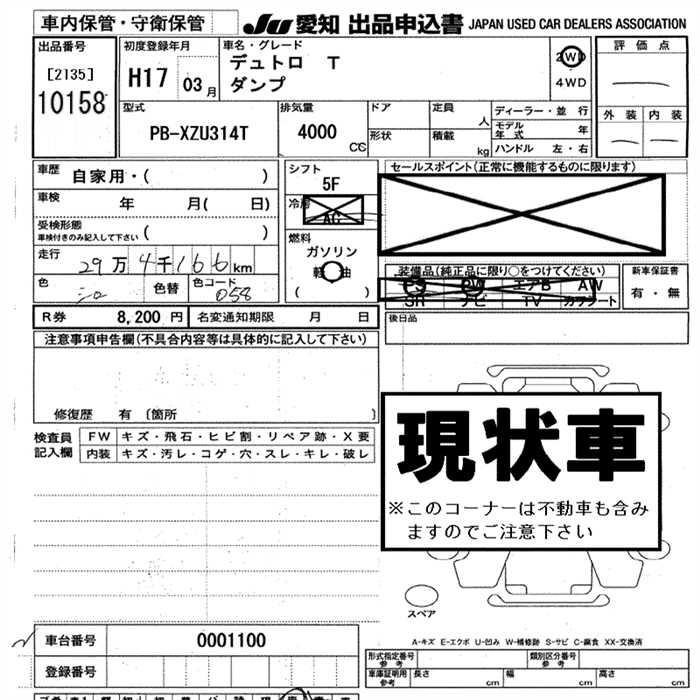 車内保管・守衛保管 JU 愛知 出品申込書 JAPAN USED CAR DEALERS ASSOCIATION
出品番号 初度登録年月 車名・グレード 評価点
[2135] H17 03月 デュトロ T 2WD
10158 ダンプ 4WD
型式 排気量 ドア 定員 人 ディーラー・並行 外装 内装
PB-XZU314T 4000 CC 形状 積載 kg モデル年式 年
ハンドル 左・右
車歴 自家用・( ) シフト 5F セールスポイント(正常に機能するものに限ります)
車検 年 月( 日) 冷房 AC
受検形態 ( )
車検付きのみ記入して下さい
燃料 ガソリン
軽油
( )
走行 29万4千166km 装備品(純正品に限り○をつけてください) 新車保証書
PS PW エアB AW 有・無
SR ナビ TV カワシート
色 シロ 色替 色コード 058
R券 8,200円 名変通知期限 月 日 後日品
注意事項申告欄(不具合内容等は具体的に記入して下さい)
修復歴 有 〔箇所 〕
検査員記入欄 FW キズ・飛石・ヒビ割・リペア跡・X要
内装 キズ・汚レ・コゲ・穴・スレ・キレ・破レ
現状車
※このコーナーは不動車も含み
ますのでご注意下さい
スペア
A-キズ E-エクボ U-凹み W-補修跡 S-サビ C-腐食 XX-交換済
車台番号 0001100
登録番号
形式指定番号 参考 類別区分番号 参考
車庫証明用 参考 長さ cm 幅 cm 高さ cm